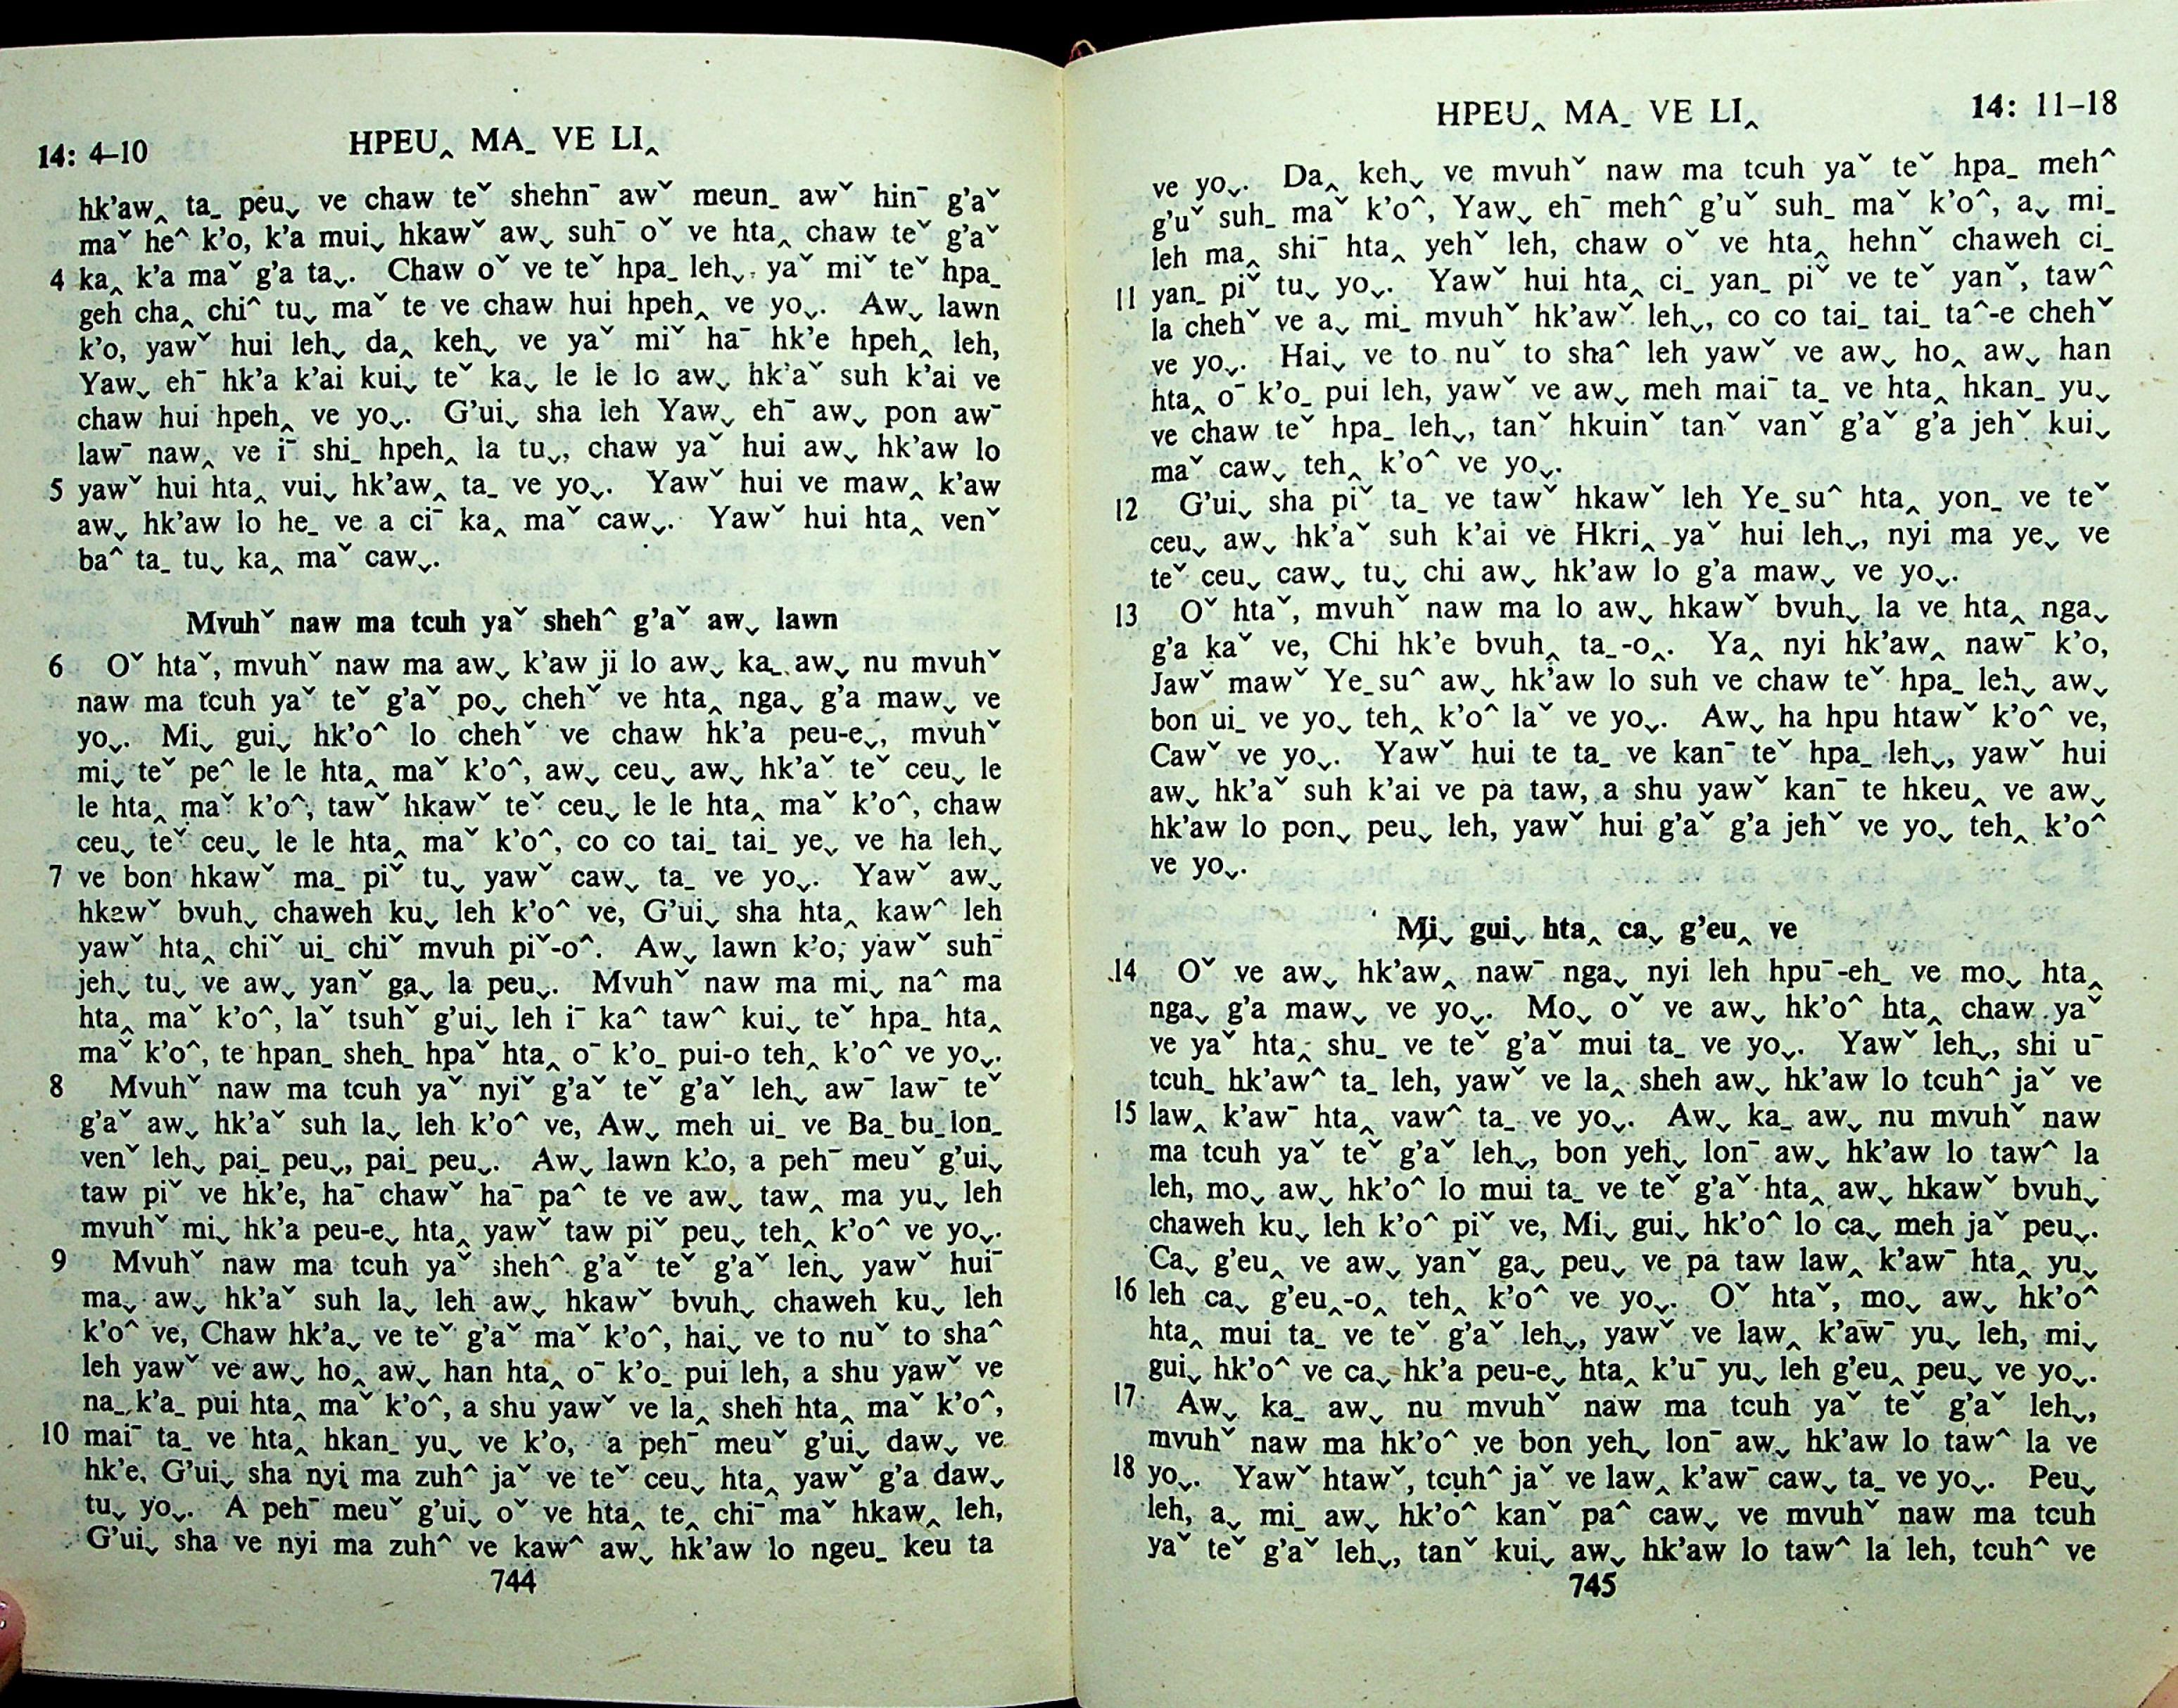 14: 4–10
HPEU‸ MA_ VE LI‸
hk'aw‸ ta_ peu˯ ve chaw teˇ shehn¯ awˇ meun_ awˇ hin¯ g'aˇ
maˇ he^ k'o, k'a mui˯ hkawˇ aw˯ suh¯ oˇ ve hta‸ chaw teˇ g'aˇ
4 ka‸ k'a maˇ g'a ta˯. Chaw oˇ ve teˇ hpa_ leh˯, yaˇ miˇ teˇ hpa_
geh cha‸ chi^ tu˯ maˇ te ve chaw hui hpeh‸ ve yo˯. Aw˯ lawn
k'o, yawˇ hui leh˯ da‸ keh˯ ve yaˇ miˇ ha¯ hk'e hpeh‸ leh,
Yaw˯ eh¯ hk'a k'ai kui˯ teˇ ka˯ le le lo aw˯ hk'aˇ suh k'ai ve
chaw hui hpeh‸ ve yo˯. G'ui˯ sha leh Yaw˯ eh¯ aw˯ pon aw¯
law¯ naw‸ ve i¯ shi_ hpeh‸ la tu˯, chaw yaˇ hui aw˯ hk'aw lo
5 yawˇ hui hta‸ vui˯ hk'aw‸ ta_ ve yo˯. Yawˇ hui ve maw‸ k'aw
aw˯ hk'aw lo he_ ve a ci¯ ka‸ maˇ caw˯. Yawˇ hui hta‸ venˇ
ba^ ta_ tu˯ ka‸ maˇ caw˯.
Mvuhˇ naw ma tcuh yaˇ sheh^ g'aˇ aw˯ lawn
6 Oˇ htaˇ, mvuhˇ naw ma aw˯ k'aw ji lo aw˯ ka_ aw˯ nu mvuhˇ
naw ma tcuh yaˇ teˇ g'aˇ po˯ chehˇ ve hta‸ nga˯ g'a maw˯ ve
yo˯. Mi˯ gui˯ hk'o^ lo chehˇ ve chaw hk'a peu-e˯, mvuhˇ
mi˯ teˇ pe^ le le hta‸ maˇ k'o^, aw˯ ceu˯ aw˯ hk'aˇ teˇ ceu˯ le
le hta‸ maˇ k'o^, tawˇ hkawˇ teˇ ceu˯ le le hta‸ maˇ k'o^, chaw
ceu˯ teˇ ceu˯ le le hta‸ maˇ k'o^, co co tai_ tai_ ye˯ ve ha leh˯
7 ve bon hkawˇ ma_ piˇ tu˯ yawˇ caw˯ ta_ ve yo˯. Yawˇ aw˯
hkawˇ bvuh˯ chaweh ku˯ leh k'o^ ve, G'ui˯ sha hta‸ kaw^ leh
yawˇ hta‸ chiˇ ui_ chiˇ mvuh piˇ-o^. Aw˯ lawn k'o, yawˇ suh¯
jeh˯ tu˯ ve aw˯ yanˇ ga˯ la peu˯. Mvuhˇ naw ma mi˯ na^ ma
hta‸ maˇ k'o^, laˇ tsuhˇ g'ui˯ leh i¯ ka^ taw^ kui˯ teˇ hpa_ hta‸
maˇ k'o^, te hpan_ sheh_ hpaˇ hta‸ o¯ k'o_ pui-o teh‸ k'o^ ve yo˯.
8 Mvuhˇ naw ma tcuh yaˇ nyiˇ g'aˇ teˇ g'aˇ leh˯ aw¯ law¯ teˇ
g'aˇ aw˯ hk'aˇ suh la˯ leh k'o^ ve, Aw˯ meh ui_ ve Ba_bu_lon_
venˇ leh˯ pai_ peu˯, pai_ peu˯. Aw˯ lawn k'o, a peh¯ meuˇ g'ui˯
taw piˇ ve hk'e, ha¯ chawˇ ha¯ pa^ te ve aw˯ taw‸ ma yu˯ leh
mvuhˇ mi˯ hk'a peu-e˯ hta‸ yawˇ taw piˇ peu˯ teh‸ k'o^ ve yo˯.
9 Mvuhˇ naw ma tcuh yaˇ sheh^ g'aˇ teˇ g'aˇ leh˯ yawˇ hui¯
ma˯ aw˯ hk'aˇ suh la˯ leh aw˯ hkawˇ bvuh˯ chaweh ku˯ leh
k'o^ ve, Chaw hk'a˯ ve teˇ g'aˇ maˇ k'o^, hai˯ ve to nuˇ to sha^
leh yawˇ ve aw˯ ho‸ aw˯ han hta‸ o¯ k'o_ pui leh, a shu yawˇ ve
na_ k'a_ pui hta‸ maˇ k'o^, a shu yawˇ ve la‸ sheh hta‸ maˇ k'o^,
10 mai¯ ta_ ve hta‸ hkan_ yu˯ ve k'o, a peh¯ meuˇ g'ui˯ daw˯ ve
hk'e, G'ui˯ sha nyi ma zuh^ jaˇ ve teˇ ceu˯ hta‸ yawˇ g'a daw˯
tu˯ yo˯. A peh¯ meuˇ g'ui˯ oˇ ve hta‸ te‸ chi¯ maˇ hkaw‸ leh,
G'ui˯ sha ve nyi ma zuh^ ve kaw^ aw˯ hk'aw lo ngeu_ keu ta
744
HPEU‸ MA_ VE LI‸
14: 11–18
ve yo˯. Da‸ keh˯ ve mvuhˇ naw ma tcuh yaˇ teˇ hpa_ meh^
g'uˇ suh_ maˇ k'o^, Yaw˯ eh¯ meh^ g'uˇ suh_ maˇ k'o^, a˯ mi_
leh ma‸ shi¯ hta‸ yehˇ leh, chaw oˇ ve hta‸ hehnˇ chaweh ci_
11 yan_ piˇ tu˯ yo˯. Yawˇ hui hta‸ ci_ yan_ piˇ ve teˇ yanˇ, taw^
la chehˇ ve a˯ mi_ mvuhˇ hk'awˇ leh˯, co co tai_ tai_ ta^-e chehˇ
ve yo˯. Hai˯ ve to nuˇ to sha^ leh yawˇ ve aw˯ ho‸ aw˯ han
hta‸ o¯ k'o_ pui leh, yawˇ ve aw˯ meh mai¯ ta_ ve hta‸ hkan_ yu˯
ve chaw teˇ hpa_ leh˯, tanˇ hkuinˇ tanˇ vanˇ g'aˇ g'a jehˇ kui˯
maˇ caw˯ teh‸ k'o^ ve yo˯.
12 G'ui˯ sha piˇ ta_ ve tawˇ hkawˇ leh Ye_su^ hta‸ yon_ ve teˇ
ceu˯ aw˯ hk'aˇ suh k'ai ve Hkri‸ yaˇ hui leh˯, nyi ma ye˯ ve
teˇ ceu˯ caw˯ tu˯ chi aw˯ hk'aw lo g'a maw˯ ve yo˯.
13 Oˇ htaˇ, mvuhˇ naw ma lo aw˯ hkawˇ bvuh˯ la ve hta‸ nga˯
g'a kaˇ ve, Chi hk'e bvuh‸ ta_-o‸. Ya‸ nyi hk'aw‸ naw¯ k'o,
Jawˇ mawˇ Ye_su^ aw˯ hk'aw lo suh ve chaw teˇ hpa_ leh˯ aw˯
bon ui_ ve yo˯ teh‸ k'o^ laˇ ve yo˯. Aw˯ ha hpu htawˇ k'o^ ve,
Cawˇ ve yo˯. Yawˇ hui te ta_ ve kan¯ teˇ hpa_ leh˯, yawˇ hui
aw˯ hk'aˇ suh k'ai ve pa taw, a shu yawˇ kan¯ te hkeu‸ ve aw˯
hk'aw lo pon˯ peu˯ leh, yawˇ hui g'aˇ g'a jehˇ ve yo˯ teh‸ k'o^
ve yo˯.
Mi˯ gui˯ hta‸ ca˯ g'eu‸ ve
14 Oˇ ve aw˯ hk'aw‸ naw¯ nga˯ nyi leh hpu¯-eh_ ve mo˯ hta‸
nga˯ g'a maw˯ ve yo˯. Mo˯ oˇ ve aw˯ hk'o^ hta‸ chaw yaˇ
ve yaˇ hta‸ shu_ ve teˇ g'aˇ mui ta_ ve yo˯. Yawˇ leh˯, shi u¯
tcuh_ hk'aw^ ta_ leh, yawˇ ve la‸ sheh aw˯ hk'aw lo tcuh^ jaˇ ve
15 law‸ k'aw¯ hta‸ vaw^ ta_ ve yo˯. Aw˯ ka_ aw˯ nu mvuhˇ naw
ma tcuh yaˇ teˇ g'aˇ leh˯, bon yeh˯ lon¯ aw˯ hk'aw lo taw^ la
leh, mo˯ aw˯ hk'o^ lo mui ta_ ve teˇ g'aˇ hta‸ aw˯ hkawˇ bvuh˯
chaweh ku˯ leh k'o^ piˇ ve, Mi˯ gui˯ hk'o^ lo ca˯ meh jaˇ peu˯.
Ca˯ g'eu‸ ve aw˯ yanˇ ga˯ peu˯ ve pa taw law‸ k'aw¯ hta‸ yu˯
16 leh ca˯ g'eu‸-o‸ teh‸ k'o^ ve yo˯. Oˇ htaˇ, mo˯ aw˯ hk'o^
hta‸ mui ta_ ve teˇ g'aˇ leh˯, yawˇ ve law‸ k'aw¯ yu˯ leh, mi˯
gui˯ hk'o^ ve ca˯ hk'a peu-e˯ hta‸ k'u¯ yu˯ leh g'eu‸ peu˯ ve yo˯.
17 Aw˯ ka_ aw˯ nu mvuhˇ naw ma tcuh yaˇ teˇ g'aˇ leh˯,
mvuhˇ naw ma hk'o^ ve bon yeh˯ lon¯ aw˯ hk'aw lo taw^ la ve
18 yo˯. Yawˇ htawˇ, tcuh^ jaˇ ve law‸ k'aw¯ caw˯ ta_ ve yo˯. Peu˯
leh, a˯ mi_ aw˯ hk'o^ kanˇ pa^ caw˯ ve mvuhˇ naw ma tcuh
yaˇ teˇ g'aˇ leh˯, tanˇ kui˯ aw˯ hk'aw lo taw^ la leh, tcuh^ ve
745